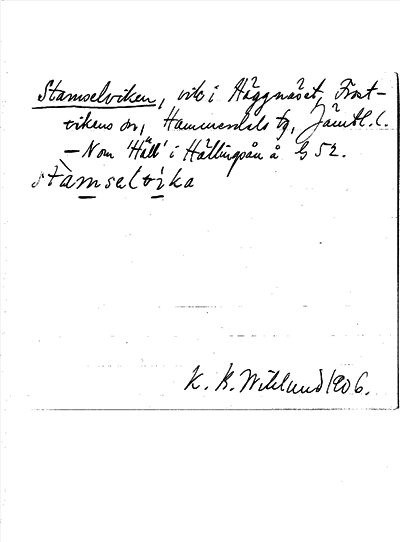 Stamselviken, vik i Häggnäset, Frost-
vikens sn, Hammerdals tg, Jämtl. l.
— N om 'Häll' i Hällingsån å G 52.
stàmselvìka
K. B. Wiklund 1906.